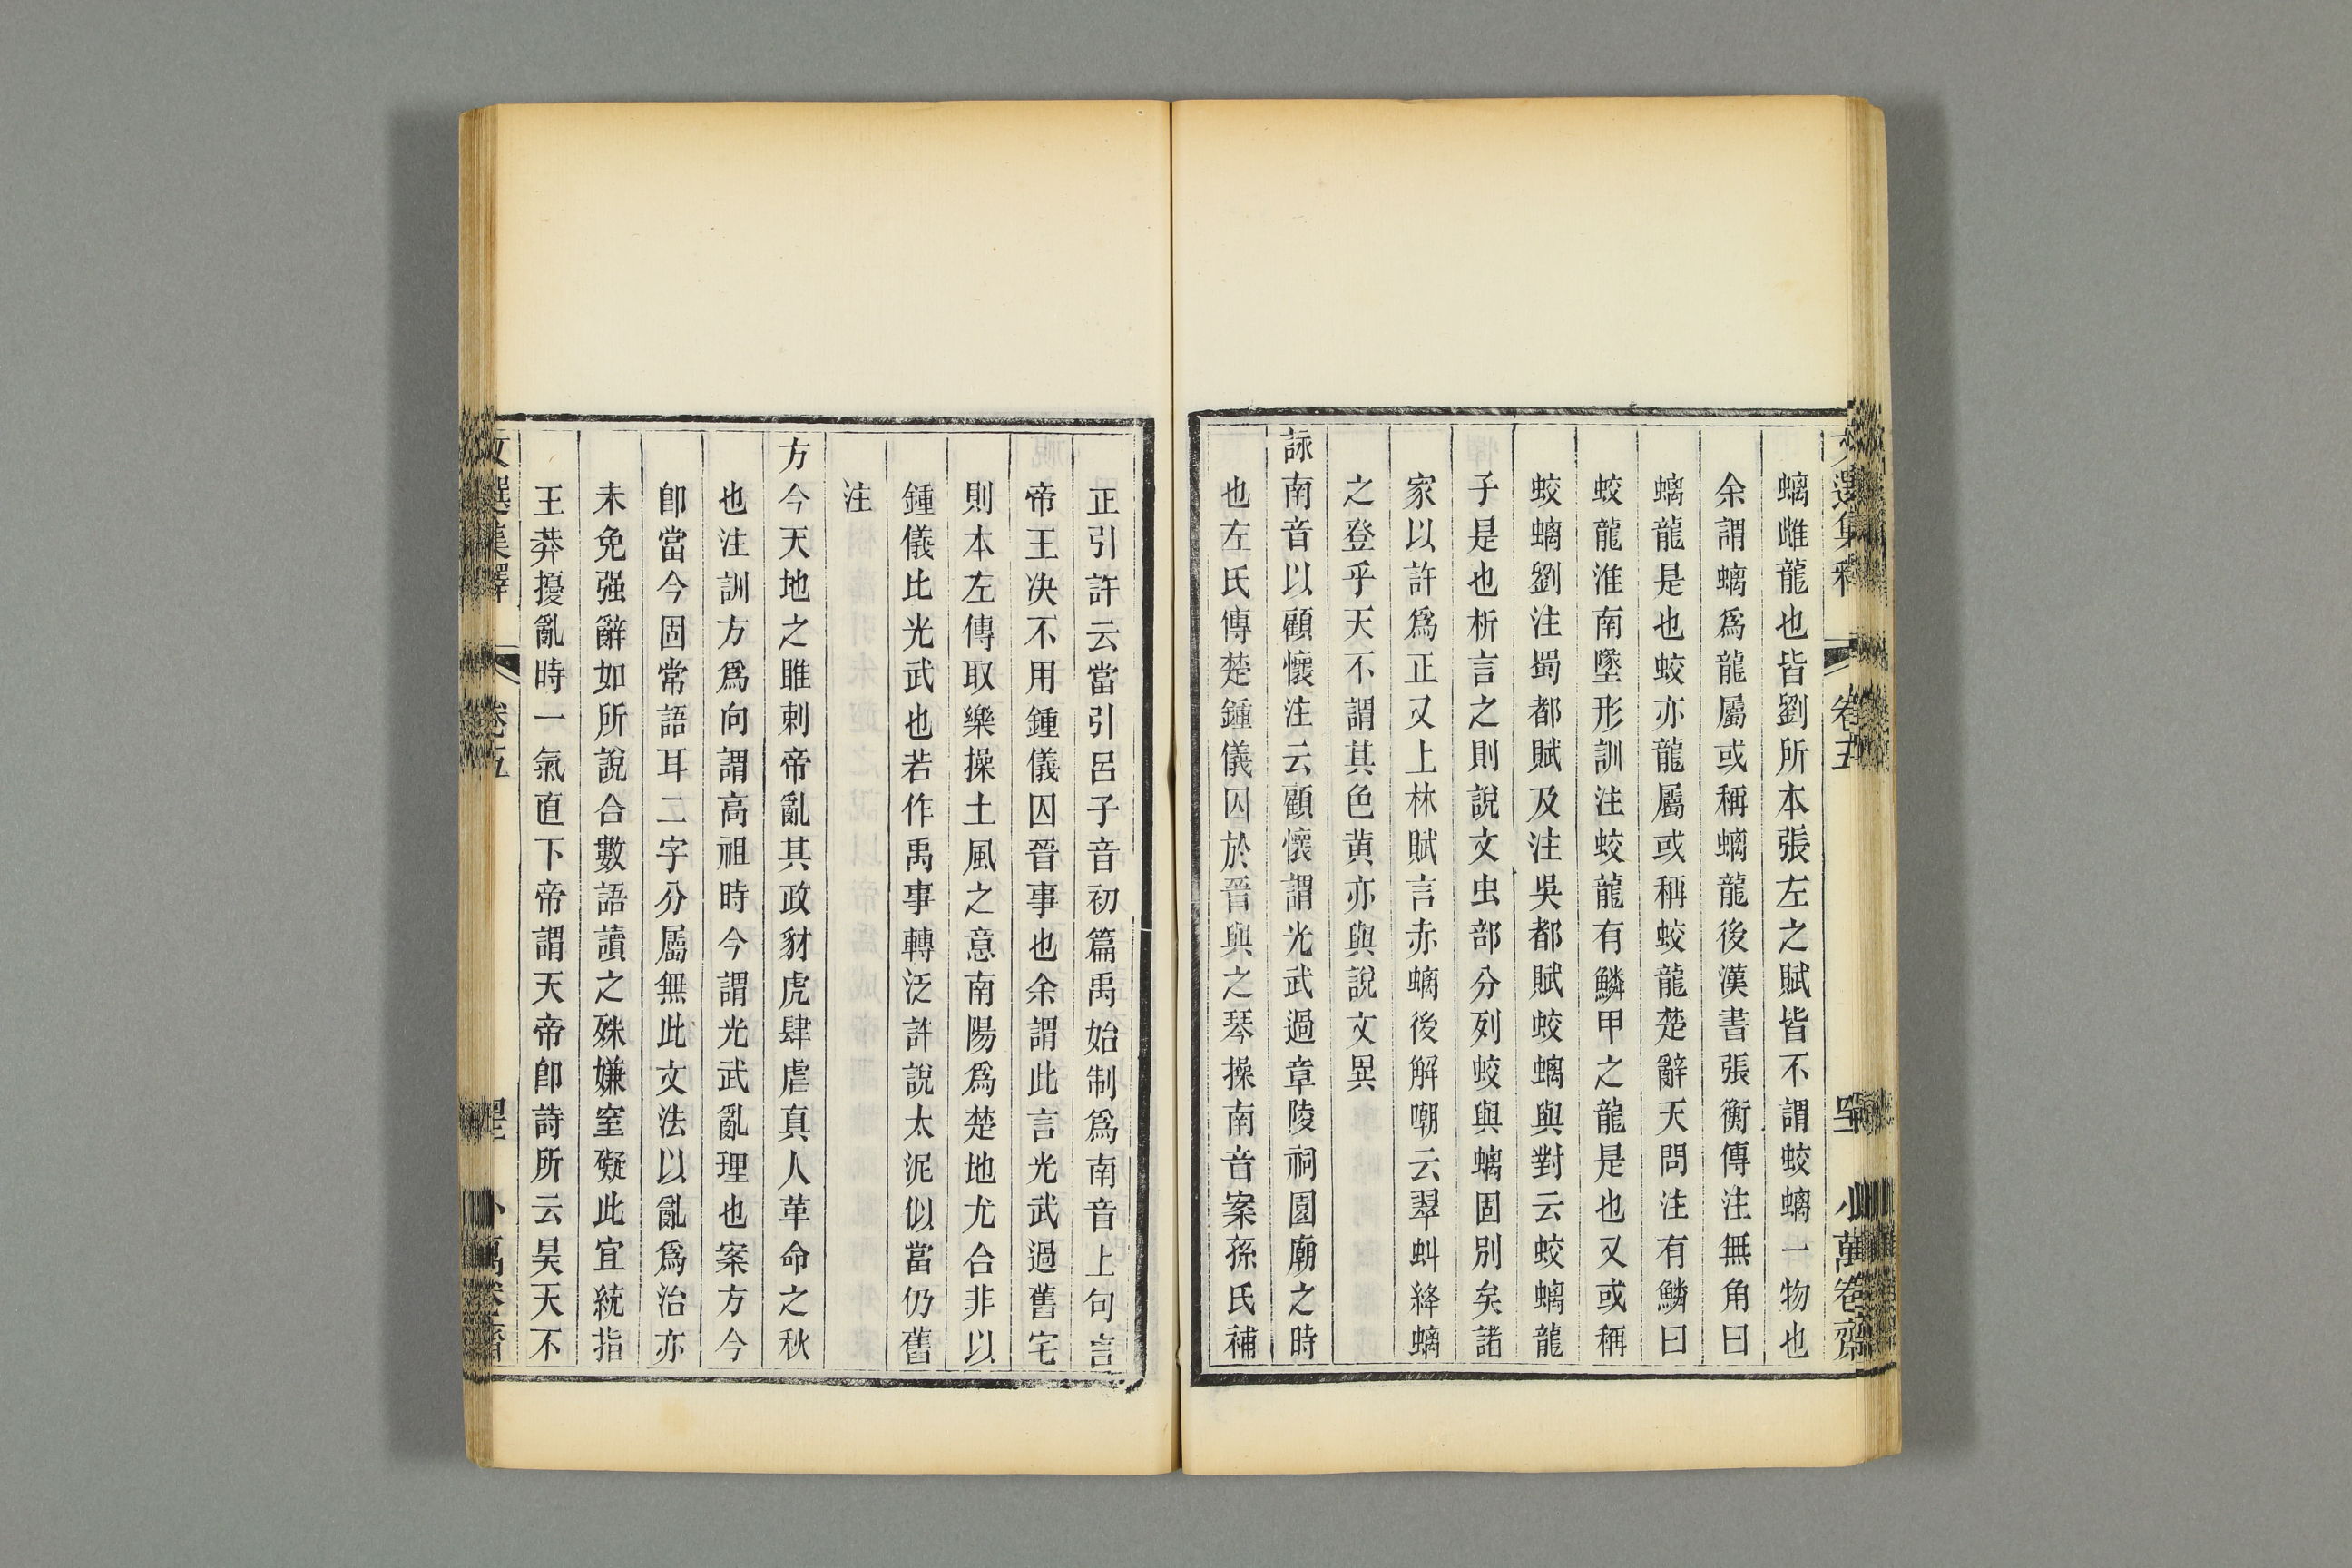 文選集釋 卷五 小萬卷齋
螭雌龍也皆劉所本張左之賦皆不謂蛟螭一物也
余謂螭爲龍屬或稱螭龍後漢書張衡傳注無角曰
螭龍是也蛟亦龍屬或稱蛟龍楚辭天問注有鱗曰
蛟龍淮南墜形訓注蛟龍有鱗甲之龍是也又或稱
蛟螭劉注蜀都賦及注吳都賦蛟螭與對云蛟螭龍
子是也析言之則說文虫部分列蛟與螭固別矣諸
家以許爲正又上林賦言赤螭後解嘲云翠虯絳螭
之登乎天不謂其色黃亦與說文異
詠南音以顧懷注云顧懷謂光武過章陵祠園廟之時
也左氏傳楚鍾儀囚於晉與之琴操南音案孫氏補
正引許云當引呂子音初篇禹始制爲南音上句言
帝王決不用鍾儀囚晉事也余謂此言光武過舊宅
則本左傳取樂操土風之意南陽爲楚地尤合非以
鍾儀比光武也若作禹事轉泛許說太泥似當仍舊
注
方今天地之睢剌帝亂其政豺虎肆虐真人革命之秋
也注訓方爲向謂高祖時今謂光武亂理也案方今
卽當今固常語耳二字分屬無此文法以亂爲治亦
未免强辭如所說合數語讀之殊嫌窒礙此宜統指
王莽擾亂時一氣直下帝謂天帝卽詩所云昊天不
文選集釋 卷五 小萬卷齋